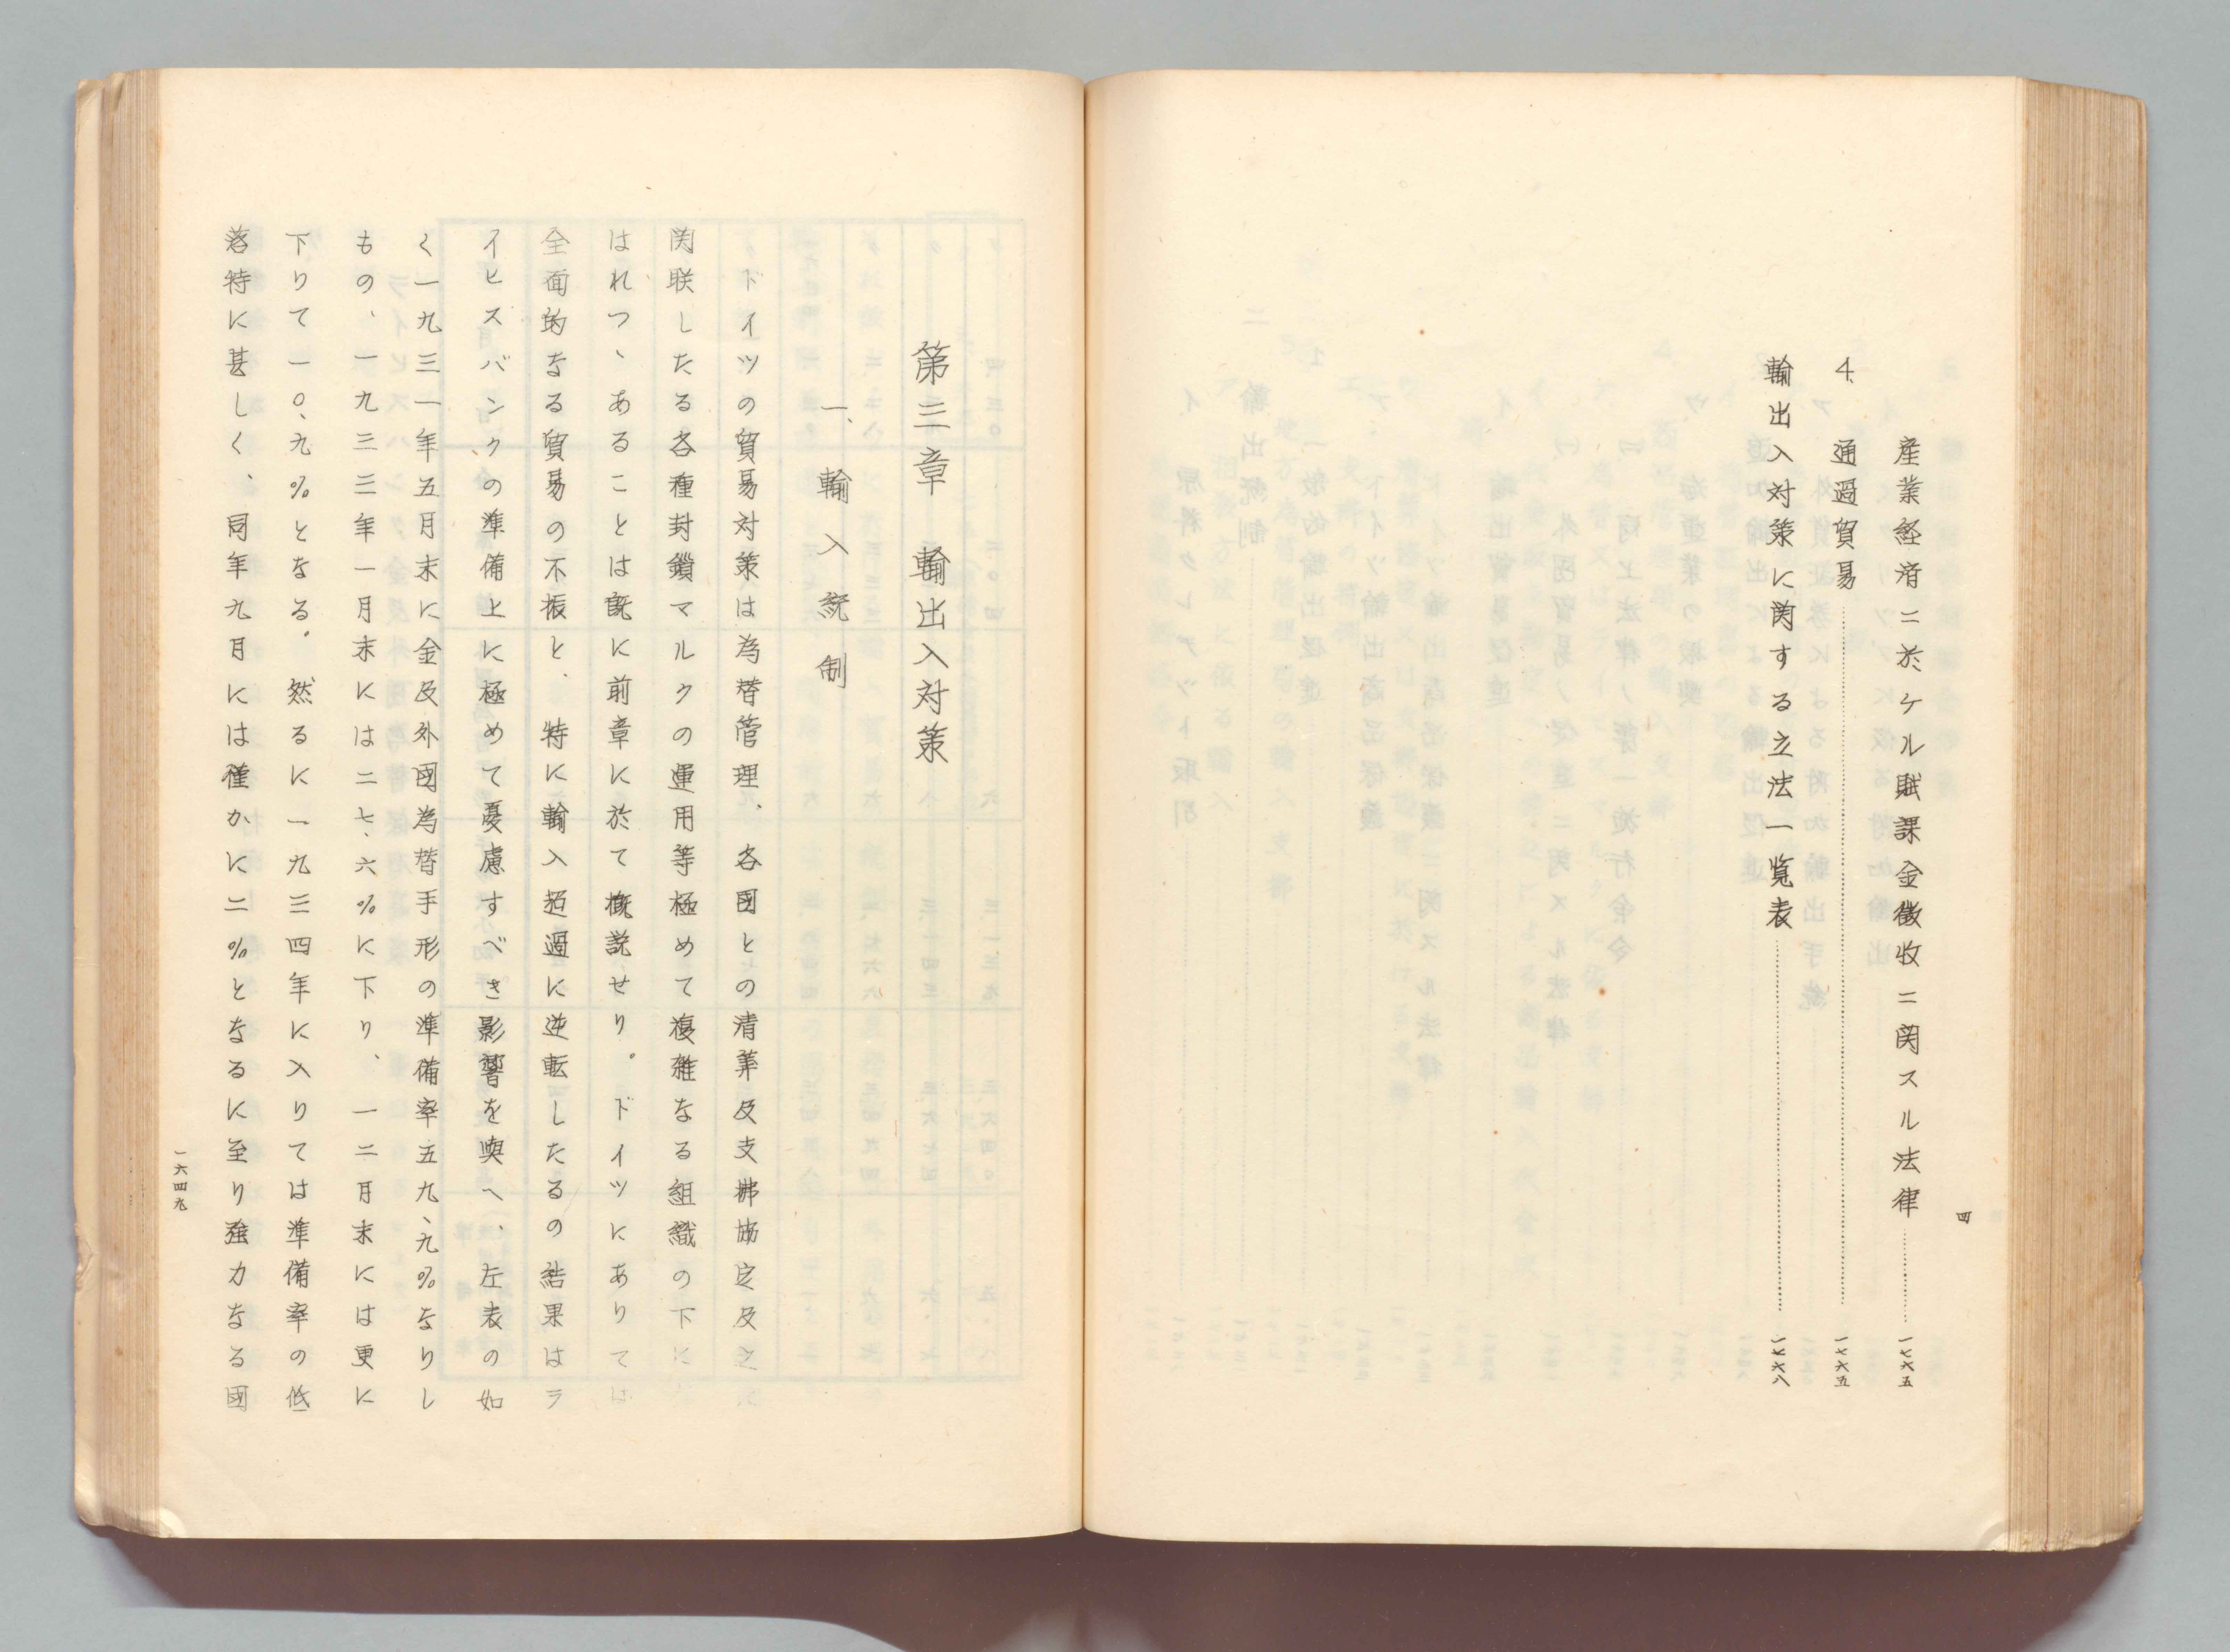 産業経済ニ於ケル賦課金徴收ニ関スル法律……一七六五
4、通過貿易……一七六五
輸出入対策に関する立法一覧表……一七六八
四
第三章　輸出入対策
一、輸入統制
ドイツの貿易対策は為替管理、各国との清算及支拂協定及之
関联したる各種封鎖マルクの運用等極めて複雑なる組織の下に
はれつゝあることは既に前章に於て概説せり。ドイツにありては
全面的なる貿易の不振と、特に輸入超過に逆転したるの結果はラ
イヒスバンクの準備上に極めて憂慮すべき影響を與へ、左表の如
く一九三一年五月末に金及外國為替手形の準備率五九、九％なりし
もの、一九三三年一月末には二七、六％に下り、一二月末には更に
下りて一〇、九％となる。然るに一九三四年に入りては準備率の低
落特に甚しく、同年九月には僅かに二％となるに至り強力なる國
一六四九